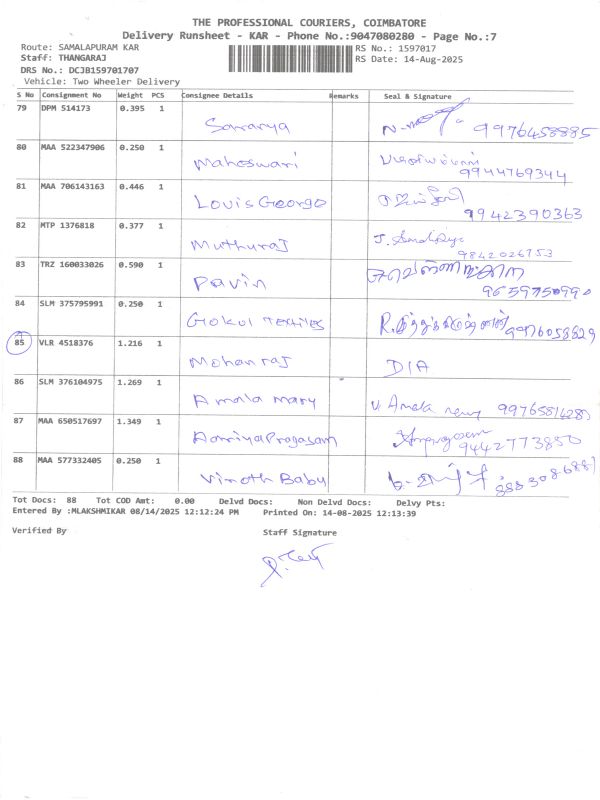 THE PROFESSIONAL COURIERS, COIMBATORE
Delivery Runsheet - KAR - Phone No.:9047080280 - Page No.:7
Route: SAMALAPURAM KAR
RS No.: 1597017
Staff: THANGARAJ
RS Date: 14-Aug-2025
DRS No.: DCJB159701707
Vehicle: Two Wheeler Delivery
S No Consignment No Weight PCS Consignee Details Remarks Seal & Signature
79 DPM 514173 0.395 1
Saranya 9976458885
80 MAA 522347906 0.250 1
Maheswari
9944769344
81 MAA 706143163 0.446 1
Louis George
9942390363
82 MTP 1376818 0.377 1
Muthuraj
9842026753
83 TRZ 160033026 0.590 1
Pavin
9659750990
84 SLM 375795991 0.250 1
Gokul Textiles
85 VLR 4518376 1.216 1
Mohanraj DIA
86 SLM 376104975 1.269 1
Amala mary
87 MAA 650517697 1.349 1
9442773850
88 MAA 577332405 0.250 1
Vinoth Babu
Tot Docs: 88 Tot COD Amt: 0.00 Delvd Docs: Non Delvd Docs: Delvy Pts:
Entered By :MLAKSHMIKAR 08/14/2025 12:12:24 PM Printed On: 14-08-2025 12:13:39
Verified By Staff Signature